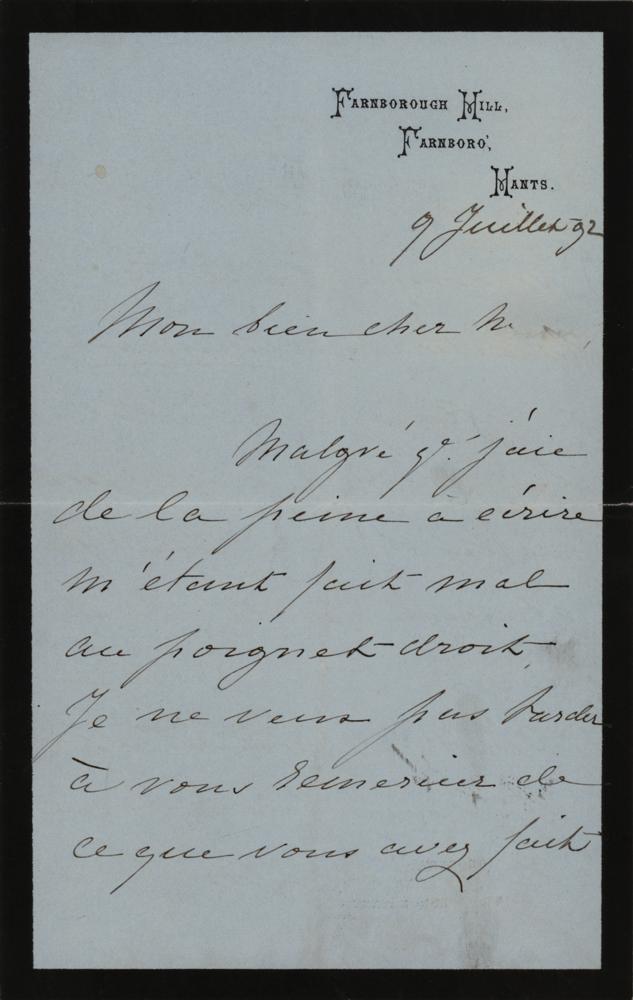 FARNBOROUGH HILL,
FARNBORO',
HANTS.
9 Juillet 92
Mon bien cher M
Malgré q. j'aie
de la peine a écrire
m'étant fait mal
au poignet droit
Je ne veux pas tarder
à vous remercier de
ce que vous avez fait